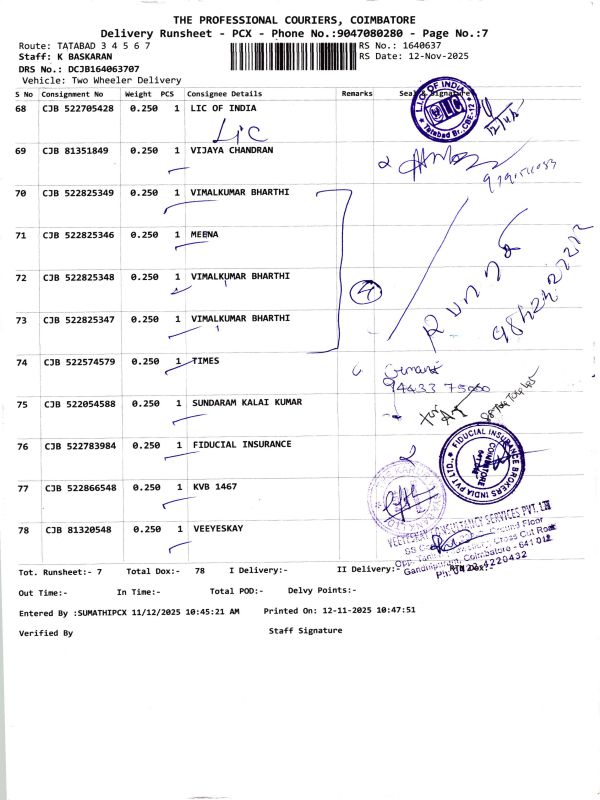 THE PROFESSIONAL COURIERS, COIMBATORE
Delivery Runsheet - PCX - Phone No.:9047080280 - Page No.:7
Route: TATABAD 3 4 5 6 7
RS No.: 1640637
Staff: K BASKARAN
RS Date: 12-Nov-2025
DRS No.: DCJB164063707
Vehicle: Two Wheeler Delivery
S No Consignment No Weight PCS Consignee Details Remarks Seal Signature
68 CJB 522705428 0.250 1 LIC OF INDIA
LIC
L.I.C OF INDIA
LIC
Tatabad Br. CBE-12
69 CJB 81351849 0.250 1 VIJAYA CHANDRAN
70 CJB 522825349 0.250 1 VIMALKUMAR BHARTHI
71 CJB 522825346 0.250 1 MEENA
72 CJB 522825348 0.250 1 VIMALKUMAR BHARTHI
4
73 CJB 522825347 0.250 1 VIMALKUMAR BHARTHI
74 CJB 522574579 0.250 1 TIMES
94433 75000
75 CJB 522054588 0.250 1 SUNDARAM KALAI KUMAR
76 CJB 522783984 0.250 1 FIDUCIAL INSURANCE
FIDUCIAL INSURANCE BROKERS INDIA PVT LTD.,
COIMBATORE
641 012
77 CJB 522866548 0.250 1 KVB 1467
78 CJB 81320548 0.250 1 VEEYESKAY
VEEYESKAY CONSULTANCY SERVICES PVT. LTD
Ground Floor
Cross Cut Road
Gandhipuram, Coimbatore - 641 012
Ph: 0422-4220432
Tot. Runsheet:- 7 Total Dox:- 78 I Delivery:- II Delivery:- RTN Dox:-
Out Time:- In Time:- Total POD:- Delvy Points:-
Entered By :SUMATHIPCX 11/12/2025 10:45:21 AM Printed On: 12-11-2025 10:47:51
Verified By Staff Signature